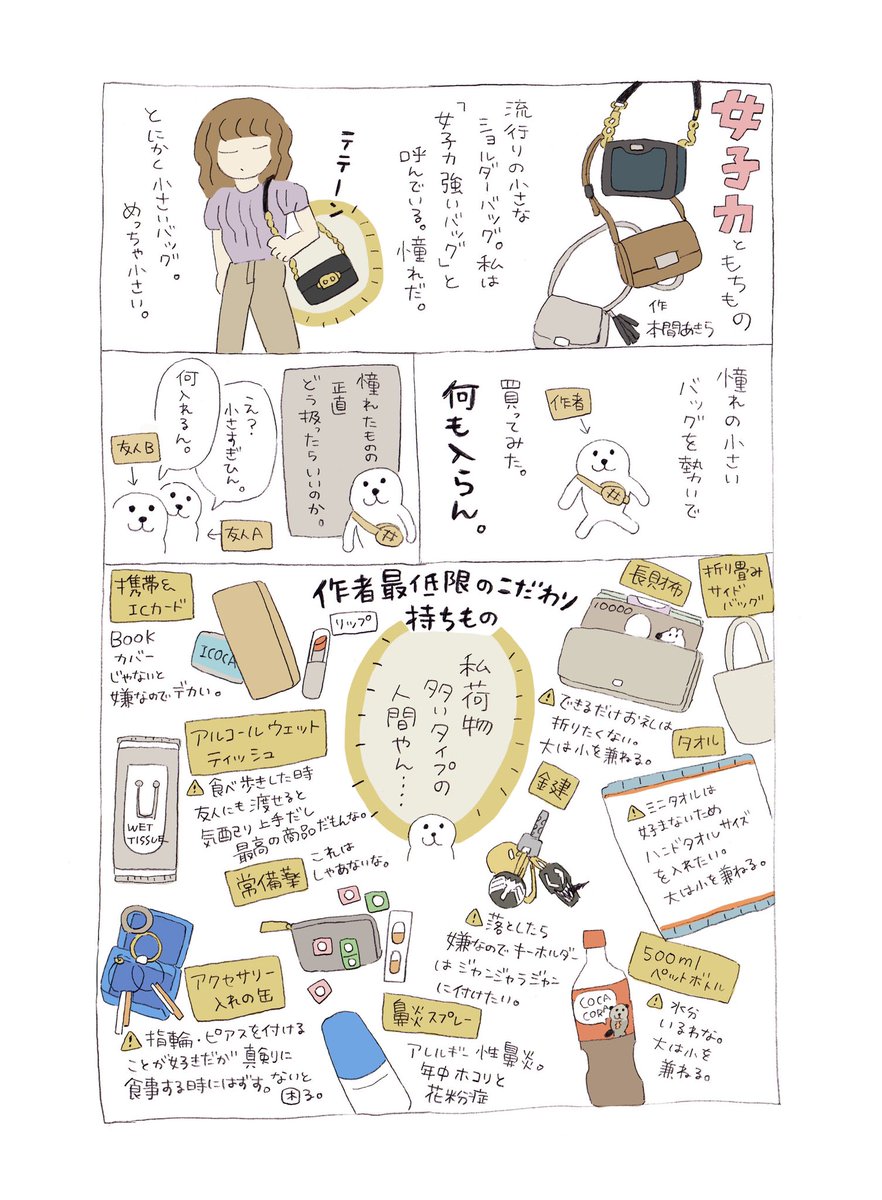 女子力ともちもの
作
本間あきら
流行りの小さな
ショルダーバッグ。私は
「女子力強いバッグ」と
呼んでいる。憧れだ。
テテーン
とにかく小さいバッグ。
めっちゃ小さい。
憧れの小さい
バッグを勢いで
作者
買ってみた。
何も入らん。
憧れたものの
正直
どう扱ったらいいのか。
え？
小さすぎひん。
何入れるん。
友人B
友人A
作者最低限のこだわり
持ちもの
携帯&
ICカード
BOOK
カバー
じゃないと
嫌なのでデカい。
ICOCA
リップ
長財布
10000
折り畳み
サイド
バッグ
できるだけお札は
折りたくない。
大は小を兼ねる。
私荷物
多いタイプの
人間やん…
アルコールウェット
ティッシュ
食べ歩きした時
友人にも渡せると
気配り上手だし
最高の商品だもんな。
WET
TISSUE
タオル
ミニタオルは
好まないため
ハンドタオルサイズ
を入れたい。
大は小を兼ねる。
鍵
落としたら
嫌なのでキーホルダー
はジャンジャラジャン
に付けたい。
常備薬
これは
しゃあないな。
アクセサリー
入れの缶
指輪・ピアスを付ける
ことが好きだが真剣に
食事する時にはずす。ないと
困る。
鼻炎スプレー
アレルギー性鼻炎。
年中ホコリと
花粉症
500ml
ペットボトル
水分
いるわな。
大は小を
兼ねる。
COCA
CORA